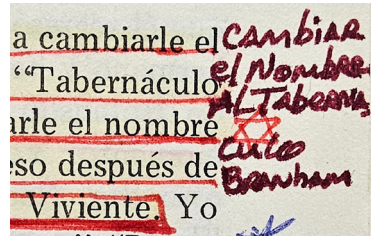 a cambiarle el
“Tabernáculo
arle el nombre
eso después de
Viviente. Yo
CAMBiAR
el NoMBRe
AL TabeRNa
CuLo
BRaNham